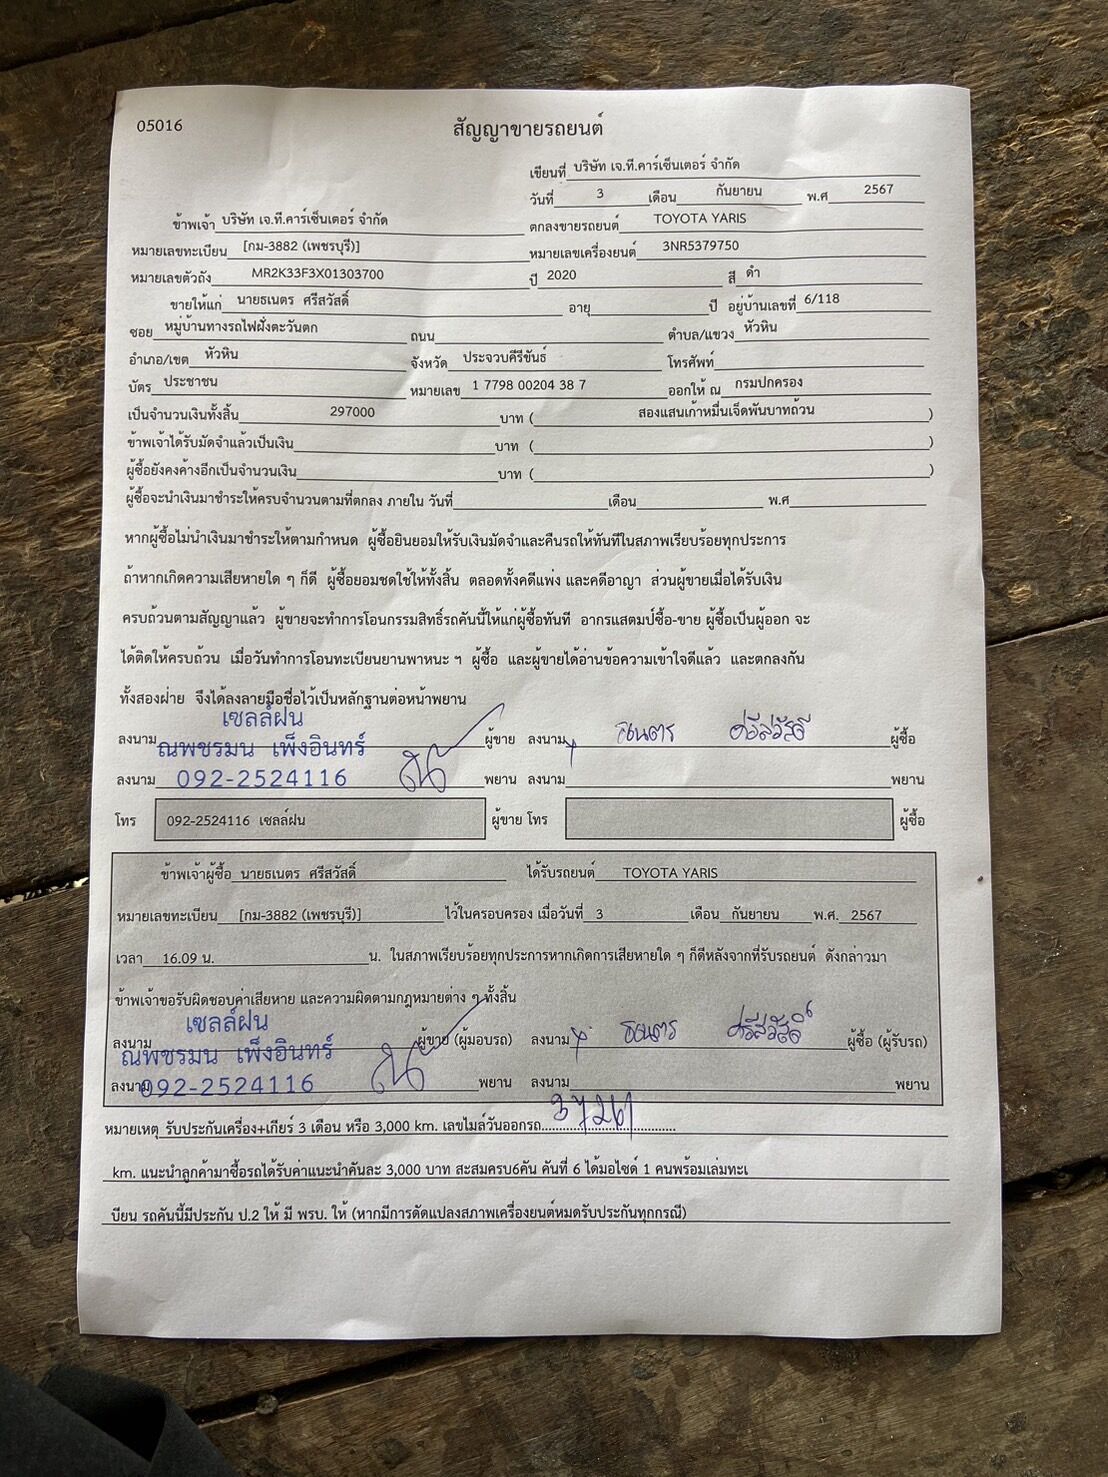 05016
สัญญาขายรถยนต์
เขียนที่ บริษัท เจ.ที.คาร์เซ็นเตอร์ จำกัด
วันที่ 3 เดือน กันยายน พ.ศ 2567
ข้าพเจ้า บริษัท เจ.ที.คาร์เซ็นเตอร์ จำกัด ตกลงขายรถยนต์ TOYOTA YARIS
หมายเลขทะเบียน [กม-3882 (เพชรบุรี)] หมายเลขเครื่องยนต์ 3NR5379750
หมายเลขตัวถัง MR2K33F3X01303700 ปี 2020 สี ดำ
ขายให้แก่ นายธเนตร ศรีสวัสดิ์ อายุ ปี อยู่บ้านเลขที่ 6/118
ซอย หมู่บ้านทางรถไฟฝั่งตะวันตก ถนน ตำบล/แขวง หัวหิน
อำเภอ/เขต หัวหิน จังหวัด ประจวบคีรีขันธ์ โทรศัพท์
บัตร ประชาชน หมายเลข 1 7798 00204 38 7 ออกให้ ณ กรมปกครอง
เป็นจำนวนเงินทั้งสิ้น 297000 บาท ( สองแสนเก้าหมื่นเจ็ดพันบาทถ้วน )
ข้าพเจ้าได้รับมัดจำแล้วเป็นเงิน บาท ( )
ผู้ซื้อยังคงค้างอีกเป็นจำนวนเงิน บาท ( )
ผู้ซื้อจะนำเงินมาชำระให้ครบจำนวนตามที่ตกลง ภายใน วันที่ เดือน พ.ศ
หากผู้ซื้อไม่นำเงินมาชำระให้ตามกำหนด ผู้ซื้อยินยอมให้รับเงินมัดจำและคืนรถให้ทันทีในสภาพเรียบร้อยทุกประการ
ถ้าหากเกิดความเสียหายใด ๆ ก็ดี ผู้ซื้อยอมชดใช้ให้ทั้งสิ้น ตลอดทั้งคดีแพ่ง และคดีอาญา ส่วนผู้ขายเมื่อได้รับเงิน
ครบถ้วนตามสัญญาแล้ว ผู้ขายจะทำการโอนกรรมสิทธิ์รถคันนี้ให้แก่ผู้ซื้อทันที อากรแสตมป์ซื้อ-ขาย ผู้ซื้อเป็นผู้ออก จะ
ได้ติดให้ครบถ้วน เมื่อวันทำการโอนทะเบียนยานพาหนะ ฯ ผู้ซื้อ และผู้ขายได้อ่านข้อความเข้าใจดีแล้ว และตกลงกัน
ทั้งสองฝ่าย จึงได้ลงลายมือชื่อไว้เป็นหลักฐานต่อหน้าพยาน
เซลล์ฝน
ลงนาม ณพชรมน เพ็งอินทร์ ผู้ขาย ลงนาม ธเนตร ศรีสวัสดิ์ ผู้ซื้อ
ลงนาม 092-2524116 พยาน ลงนาม พยาน
โทร 092-2524116 เซลล์ฝน ผู้ขาย โทร ผู้ซื้อ
ข้าพเจ้าผู้ซื้อ นายธเนตร ศรีสวัสดิ์ ได้รับรถยนต์ TOYOTA YARIS
หมายเลขทะเบียน [กม-3882 (เพชรบุรี)] ไว้ในครอบครอง เมื่อวันที่ 3 เดือน กันยายน พ.ศ. 2567
เวลา 16.09 น. น. ในสภาพเรียบร้อยทุกประการหากเกิดการเสียหายใด ๆ ก็ดีหลังจากที่รับรถยนต์ ดังกล่าวมา
ข้าพเจ้าขอรับผิดชอบค่าเสียหาย และความผิดตามกฎหมายต่าง ๆ ทั้งสิ้น
เซลล์ฝน
ลงนาม ณพชรมน เพ็งอินทร์ ผู้ขาย (ผู้มอบรถ) ลงนาม ธเนตร ศรีสวัสดิ์ ผู้ซื้อ (ผู้รับรถ)
ลงนาม 092-2524116 พยาน ลงนาม พยาน
หมายเหตุ รับประกันเครื่อง+เกียร์ 3 เดือน หรือ 3,000 km. เลขไมล์วันออกรถ
km. แนะนำลูกค้ามาซื้อรถได้รับค่าแนะนำคันละ 3,000 บาท สะสมครบ6คัน คันที่ 6 ได้มอไซด์ 1 คนพร้อมเล่มทะเ
บียน รถคันนี้มีประกัน ป.2 ให้ มี พรบ. ให้ (หากมีการดัดแปลงสภาพเครื่องยนต์หมดรับประกันทุกกรณี)